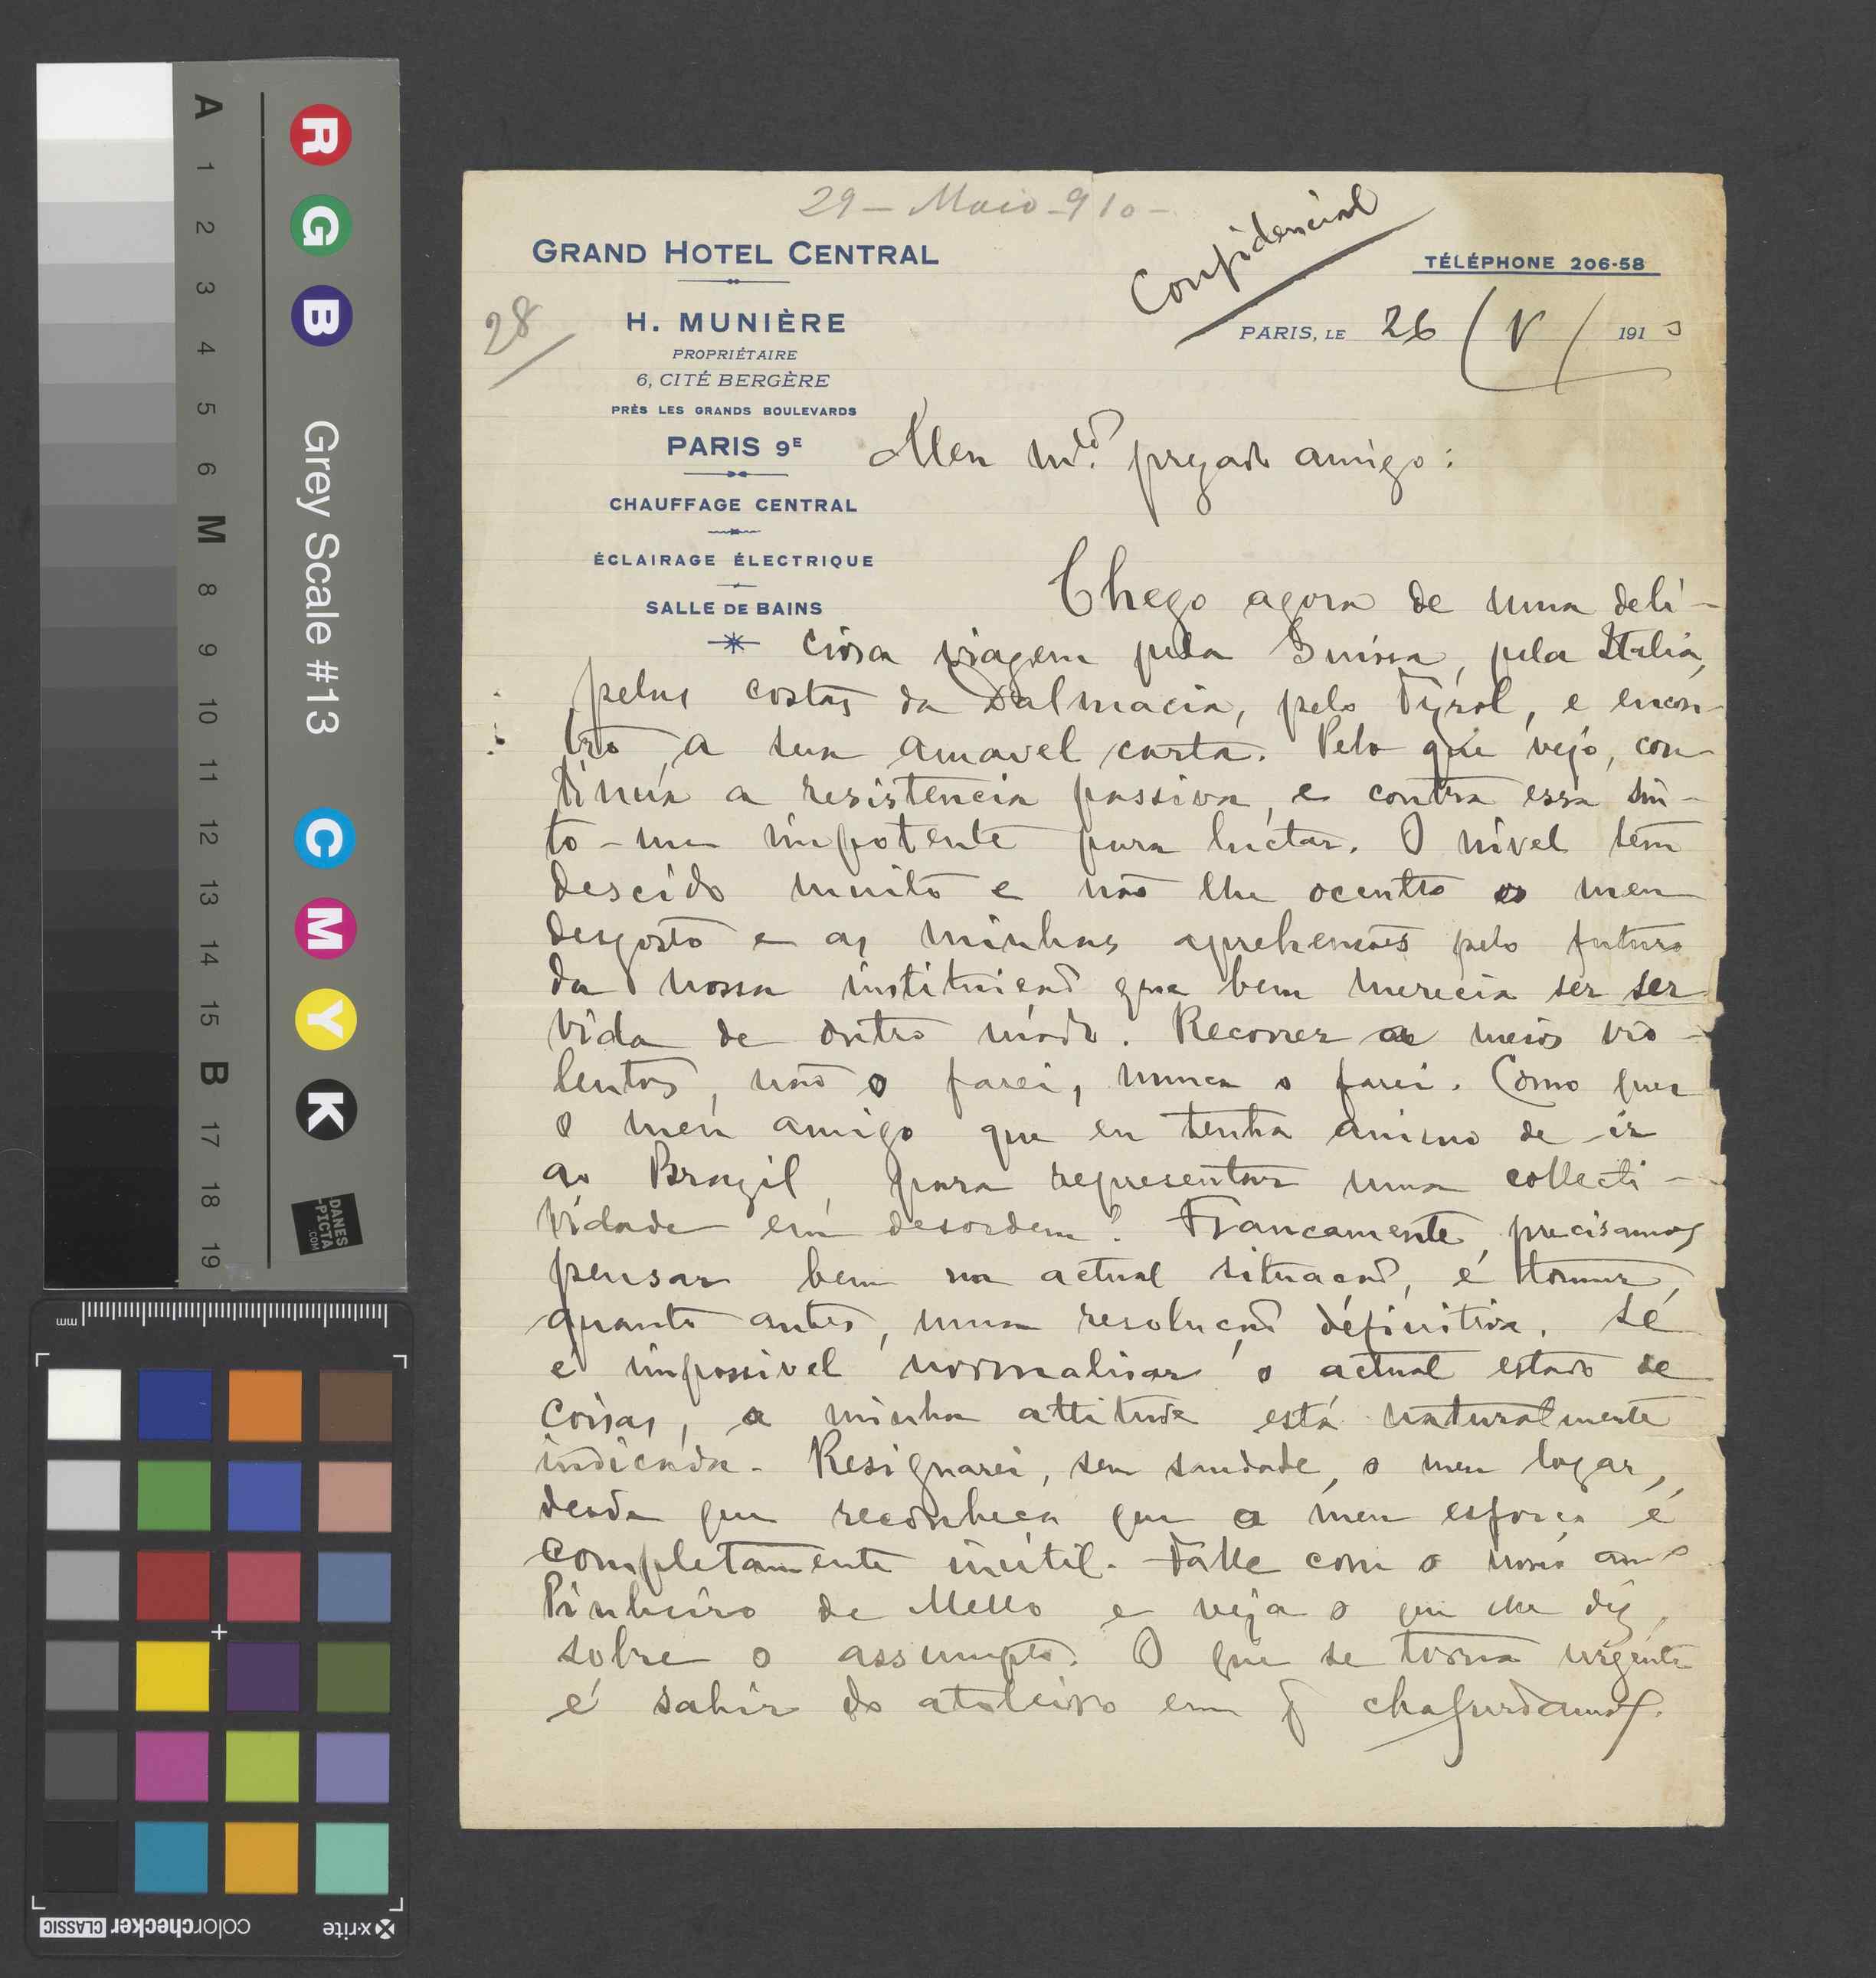 29 — Maio - 910 -
Confidencial
GRAND HOTEL CENTRAL
TÉLÉPHONE 206-58
28
H. MUNIÈRE
PROPRIÉTAIRE
6, CITÉ BERGÈRE
PRÈS LES GRANDS BOULEVARDS
PARIS 9E
CHAUFFAGE CENTRAL
ÉCLAIRAGE ÉLECTRIQUE
SALLE DE BAINS
PARIS, LE 26 / V / 1910
Meu m.to prezado amigo:
Chego agora de uma deli-
ciosa viagem pela Suissa, pela Italia,
pelas costas da Dalmacia, pelo Tyrol, e encon-
tro a sua amavel carta. Pelo que vejo, con-
tinúa a resistencia passiva, e contra essa sin-
to-me impotente para luctar. O nivel tem
descido muito e não lhe occulto o meu
desgosto e as minhas aprehensões pelo futuro
da nossa instituição que bem merecia ser ser
vida de outro modo. Recorrer a meios vio-
lentos, não o farei, nunca o farei. Como quer
o meu amigo que eu tenha animo de ir
ao Brazil, para representar uma collecti-
vidade em desordem? Francamente, precisamos
pensar bem na actual situação, e tomar,
quanto antes, uma resolução definitiva. Se
é impossivel normalisar o actual estado de
coisas, a minha attitude está naturalmente
indicada. Resignarei, sem saudade, o meu logar,
desde que reconheça que o meu esforço é
completamente inútil. Falle com o nosso amo
Pinheiro de Mello e veja o que elle diz
sobre o assumpto. O que se torna urgente
é sahir do atoleiro em q chafurdamos.
A 1 2 3 4 5 6 M 8 9 10 11 12 13 14 15 B 17 18 19
R G B Grey Scale #13 C M Y K
DANES
-PICTA
.COM
mm
x-rite
colorchecker CLASSIC